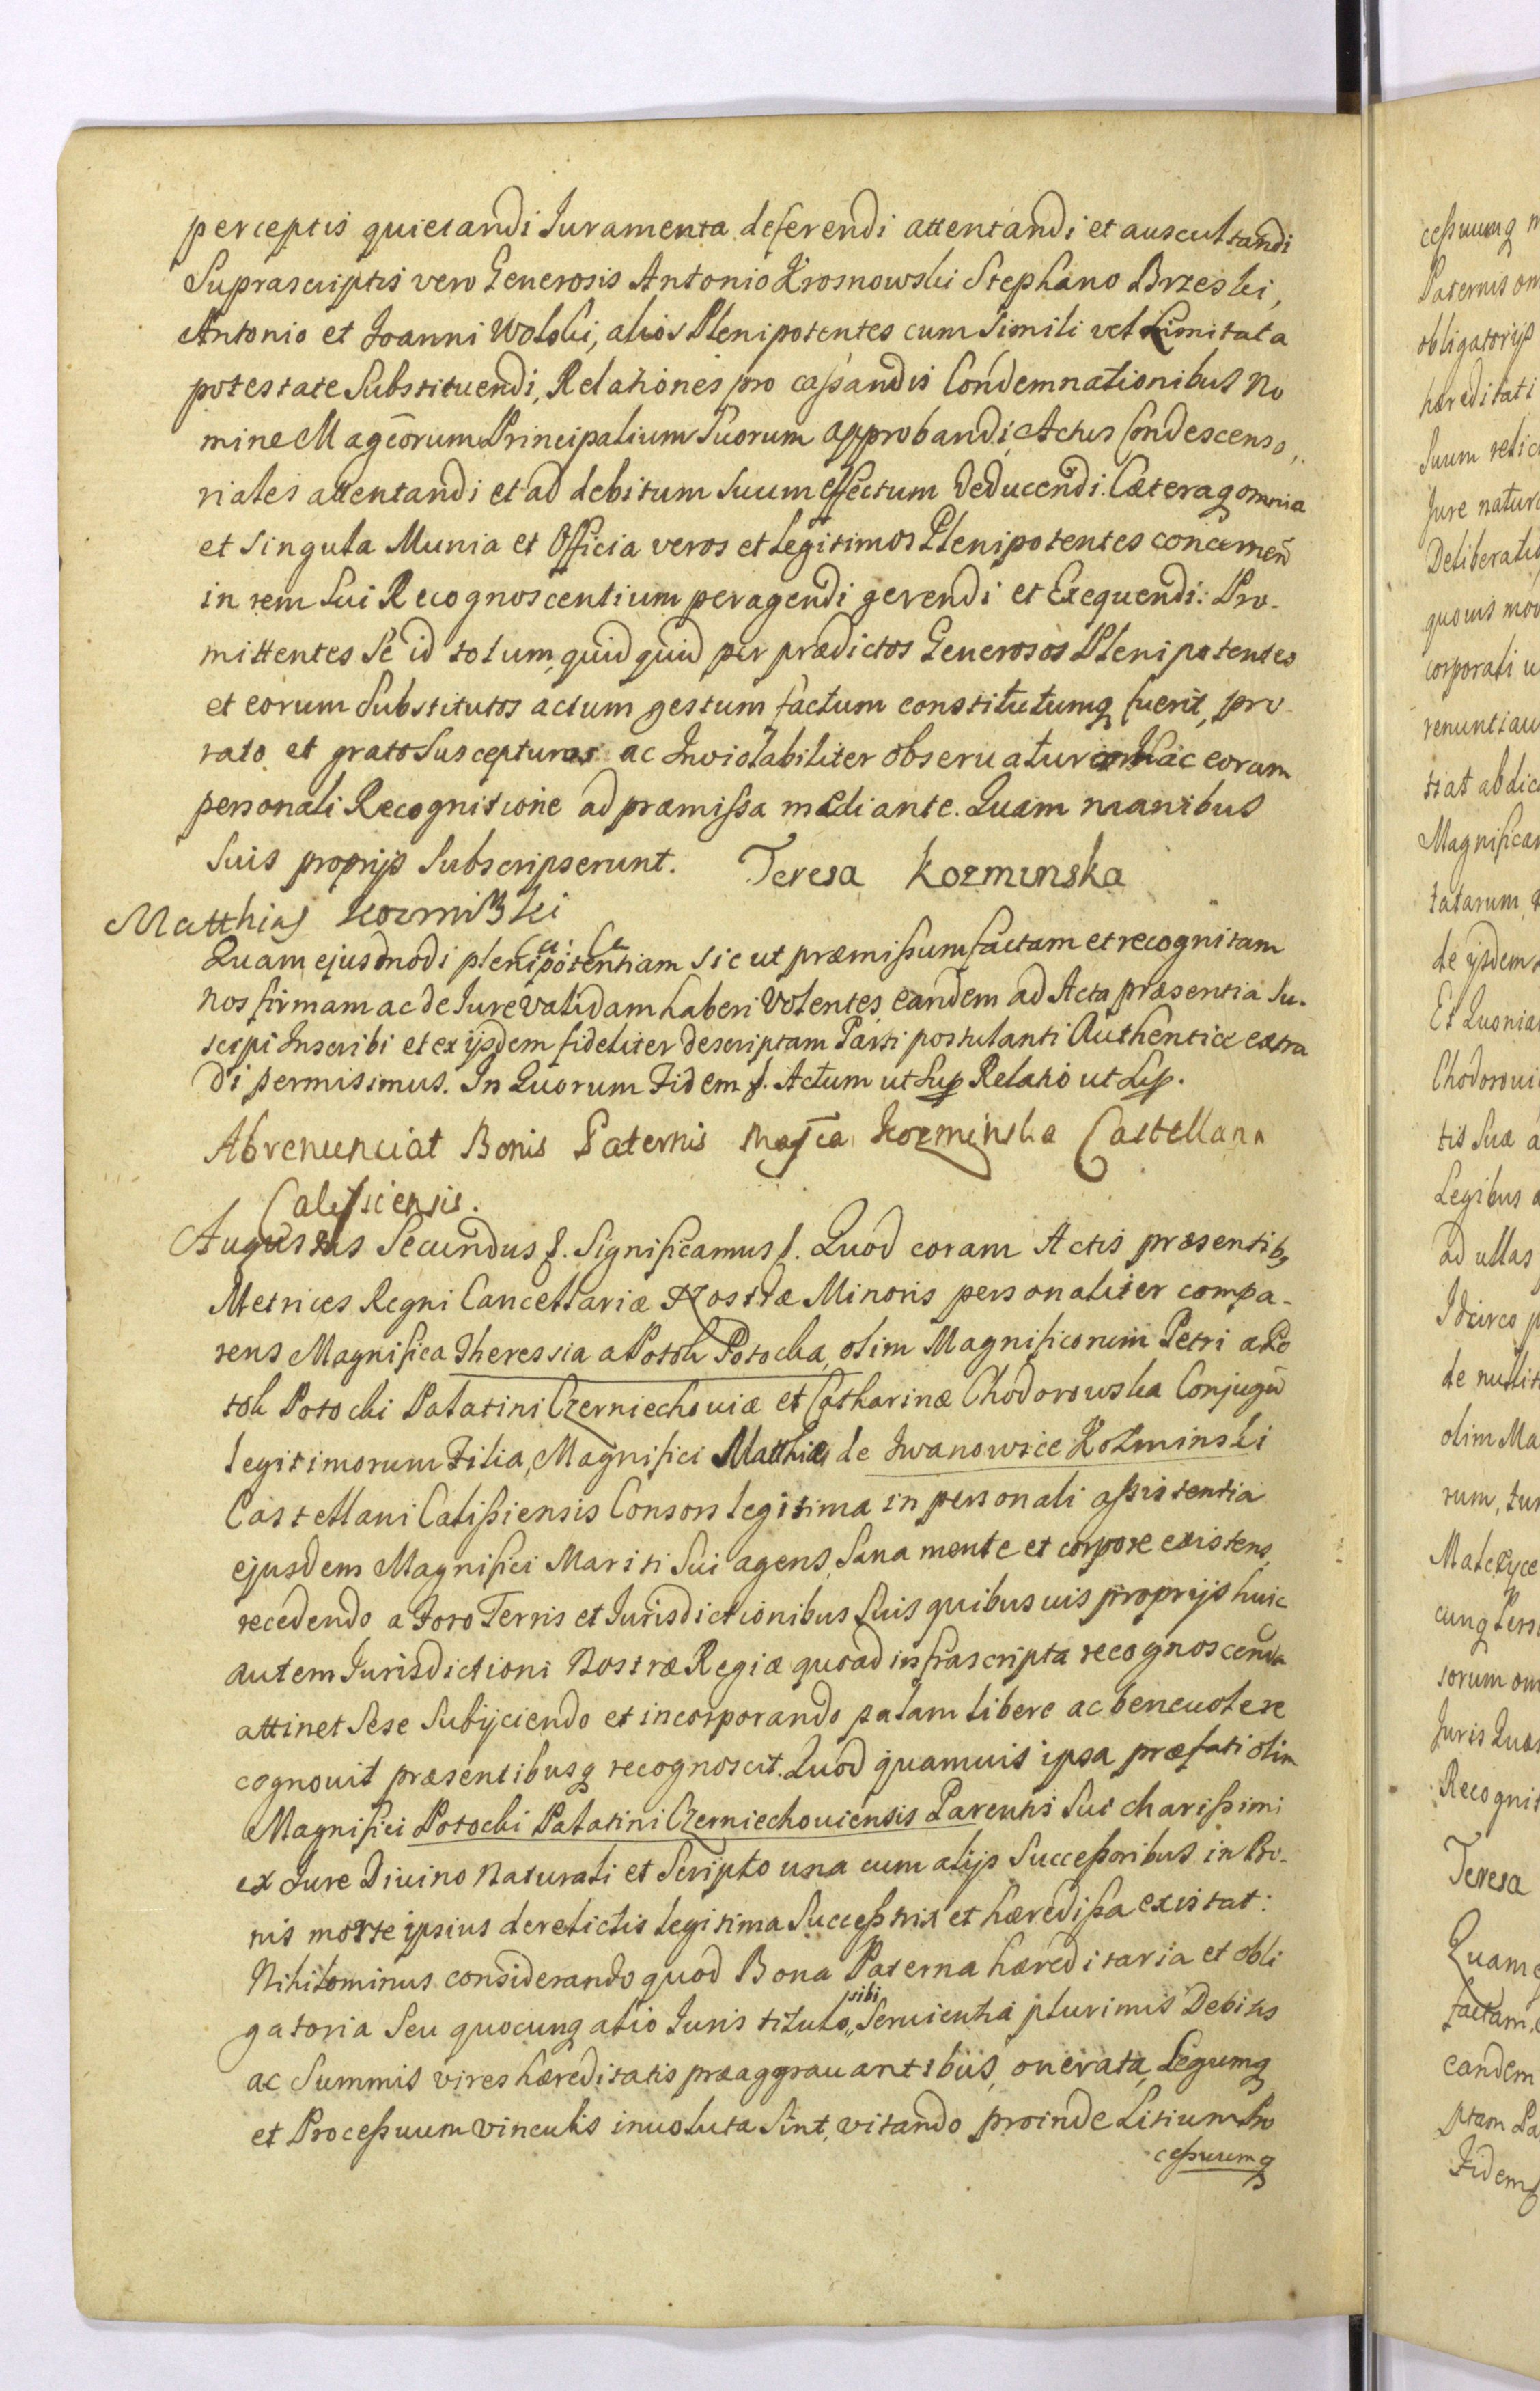 perceptis quietandi Juramenta deferendi attentandi et auscultandi
Suprascriptis vero Generosis Antonio Krosnowski Stephano Brzeski,
Antonio et Joanni Wolski, alios Plenipotentes cum simili vel Limitata
potestate Substituendi, Relationes pro cassandis Condemnationibus No
mine Magcorum Principalium Suorum approbandi, Actus Condescenso,,
riales attentandi et ad debitum suum effectum deducendi. Cæteraq omnia
et singula Munia et Officia veros et legitimos Plenipotentes concernen
in rem sui Recognoscentium peragendi gerendi et Exequendi: Pro-
mittentes se id totum, quidquid per prædictos Generosos Plenipotentes
et eorum Substitutos actum gestum factum constitutumq fuerit, pro
rato et grato Suscepturos ac Inviolabiliter observaturos hac eorum
personali Recognitione ad præmissa mediante. Quam manibus
suis proprijs Subscripserunt. Teresa Kozminska
Matthias Kozminski
Quam ejusmodi plenipotentiam sic ut præmissum factam et recognitam
nos firmam ac de Jure validam haberi Volentes, eandem ad Acta præsentia su-
scipi Inscribi et ex ijsdem fideliter descriptam Parti postulanti Authentice extra
di permisimus. In Quorum Fidem f. Actum ut Sup Relatio ut Sup.
Abrenunciat Bonis Paternis Mag̃ca Kozminska Castellana
Calissiensis.
Augustus Secundus f. Significamus f. Quod coram Actis præsentib9
Metrices Regni Cancellariæ Nostræ Minoris personaliter compa-
rens Magnifica Theressia a Potok Potocka, olim Magnificorum Petri a Po
tok Potocki Palatini Czerniechoviæ et Catharinæ Chodorowska Conjugũ
legitimorum Filia, Magnifici Matthiæ de Iwanowice Kozminski
Castellani Calissiensis Consors legitima in personali assistentia
ejusdem Magnifici Mariti Sui agens, sana mente et corpore existens,
recedendo a Foro Terris et Jurisdictionibus suis quibusuis proprijs huic
autem Jurisdictioni Nostræ Regiæ quoad infrascripta recognoscenda
attinet Sese Subijciendo et incorporando palam libere ac beneuole re
cognouit præsentibusq recognoscit. Quod quamuis ipsa præfati olim
Magnifici Potocki Palatini Czerniechouiensis Parentis Sui charissimi
ex Jure Diuino Naturali et Scripto una cum alijs Successoribus in Bo-
nis morte ipsius derelictis legitima Successtrix et hæredissa existat:
Nihilominus considerando quod Bona Paterna hæreditaria et obli
gatoria seu quocunq alio Juris titulo,, sibi Seruientia plurimis Debitis
ac Summis vires hæreditatis præaggrauantibus, onerata, Legumq
et Processuum vinculis inuoluta sint, vitando proinde Litium Pro
cessuumq